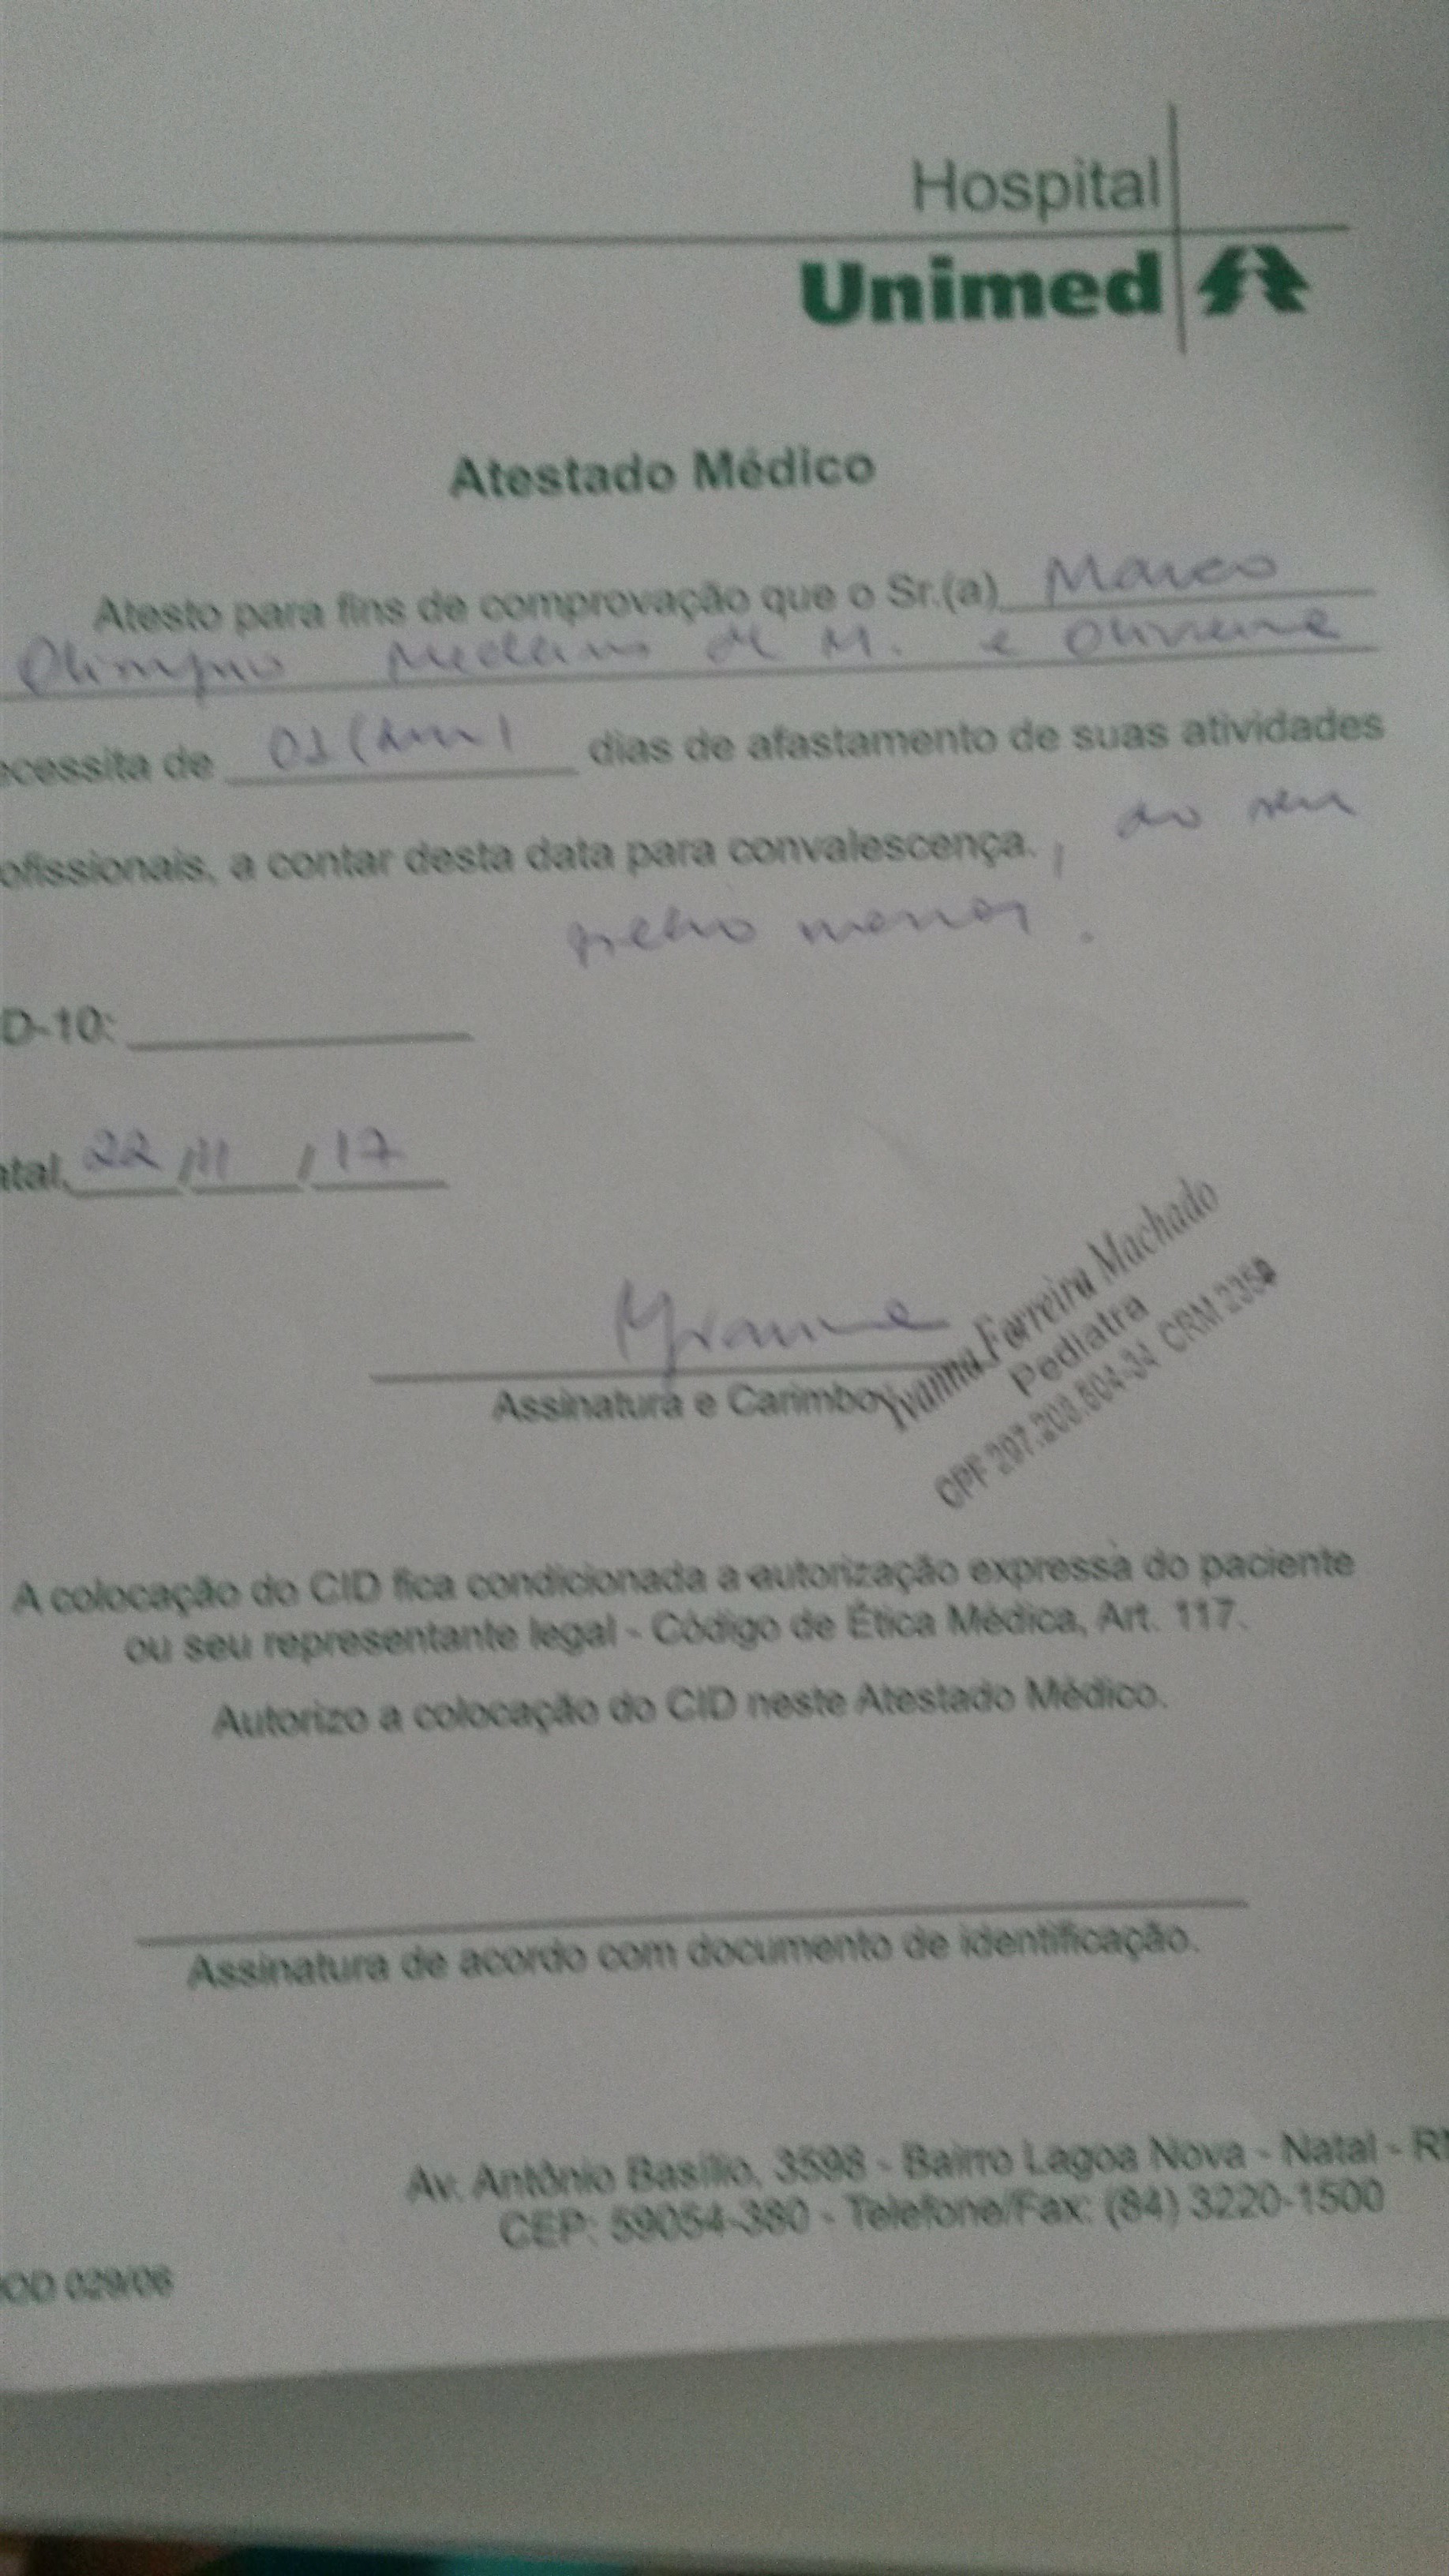 Hospital
Unimed
Atestado Médico
Atesto para fins de comprovação que o Sr.(a) Marco
Olimpio Medeiros de M. e Oliveira
ecessita de 01 (um) dias de afastamento de suas atividades
ofissionais, a contar desta data para convalescença. , do seu
filho menor.
D-10:
atal, 22/11/17
Assinatura e Carimbo
Yvanna Ferreira Machado
Pediatra
CPF 297.203.504-34 CRM
A colocação do CID fica condicionada a autorização expressa do paciente
ou seu representante legal - Código de Ética Médica, Art. 117.
Autorizo a colocação do CID neste Atestado Médico.
Assinatura de acordo com documento de identificação.
Av. Antônio Basílio, 3598 - Bairro Lagoa Nova - Natal - RN
CEP: 59054-380 - Telefone/Fax: (84) 3220-1500
OD 029/06